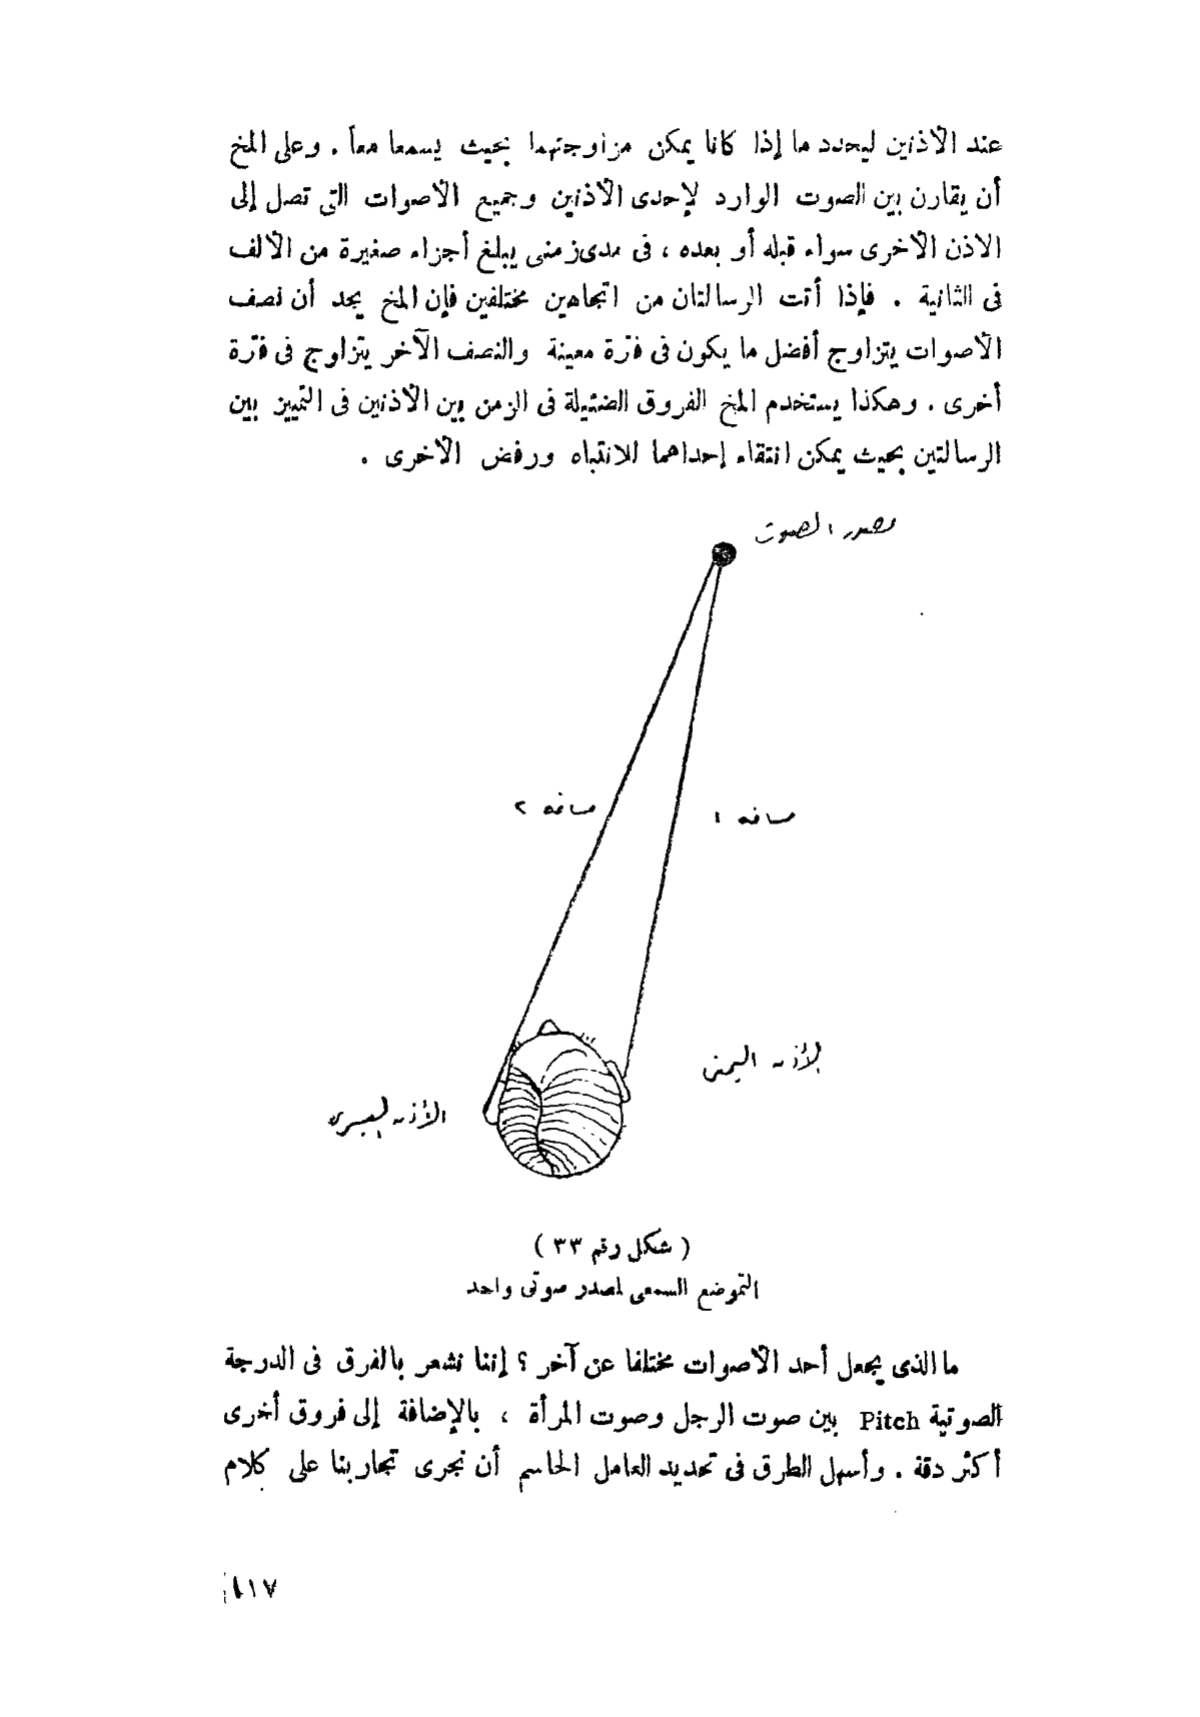 عند الأذنين ليحدد ما إذا كانا يمكن مزاوجتهما بحيث يسمعا معاً . وعلى المخ
أن يقارن بين الصوت الوارد لإحدى الأذنين وجميع الأصوات التى تصل إلى
الأذن الأخرى سواء قبله أو بعده ، فى مدى زمنى يبلغ أجزاء صغيرة من الألف
فى الثانية . فإذا أتت الرسالتان من اتجاهين مختلفين فإن المخ يجد أن نصف
الأصوات يتزاوج أفضل ما يكون فى فترة معينة والنصف الآخر يتزاوج فى فترة
أخرى . وهكذا يستخدم المخ الفروق الضئيلة فى الزمن بين الأذنين فى التمييز بين
الرسالتين بحيث يمكن انتقاء إحداهما للانتباه ورفض الأخرى .
مصدر الصوت
مسافه ٢
مسافه ١
الأذن اليمنى
الأذن اليسرى
( شكل رقم ٣٣ )
التموضع السمعى لمصدر صوتى واحد
ما الذى يجعل أحد الأصوات مختلفا عن آخر ؟ إننا نشعر بالفرق فى الدرجة
الصوتية Pitch بين صوت الرجل وصوت المرأة ، بالإضافة إلى فروق أخرى
أكثر دقة . وأسهل الطرق فى تحديد العامل الحاسم أن نجرى تجاربنا على كلام
١١٧